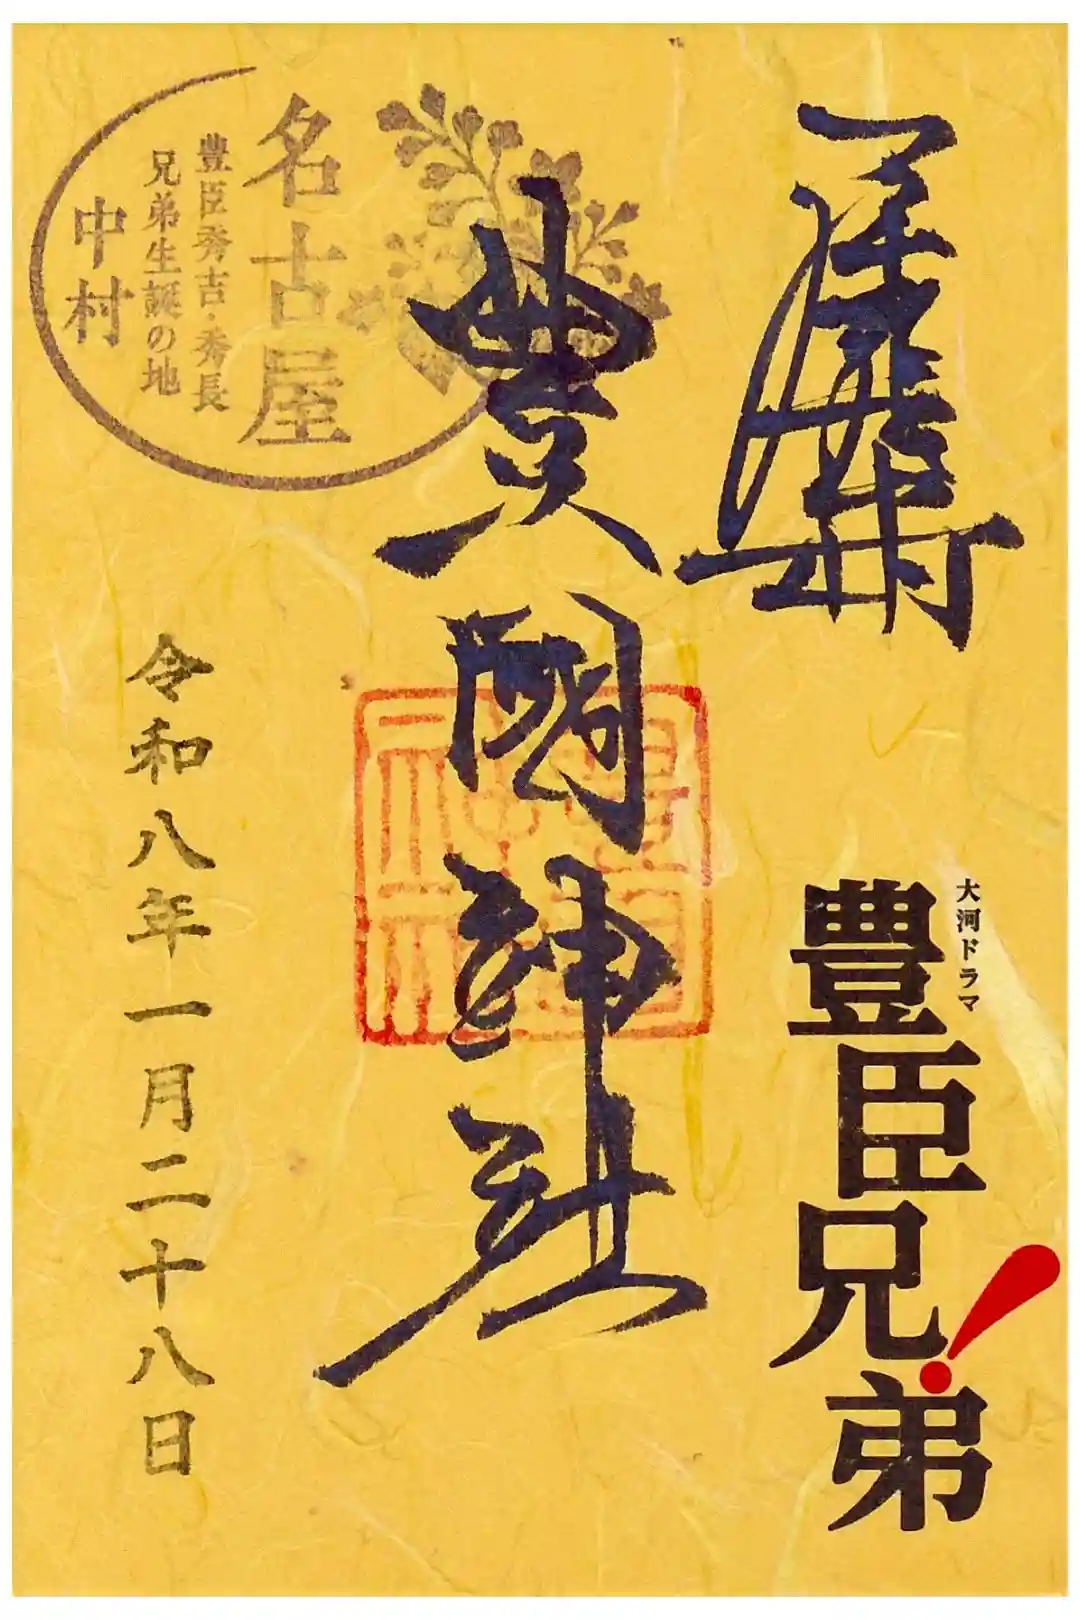 大河ドラマ
豊臣兄弟！
豊國神社
名古屋
豊臣秀吉・秀長
兄弟生誕の地
中村
令和八年一月二十八日